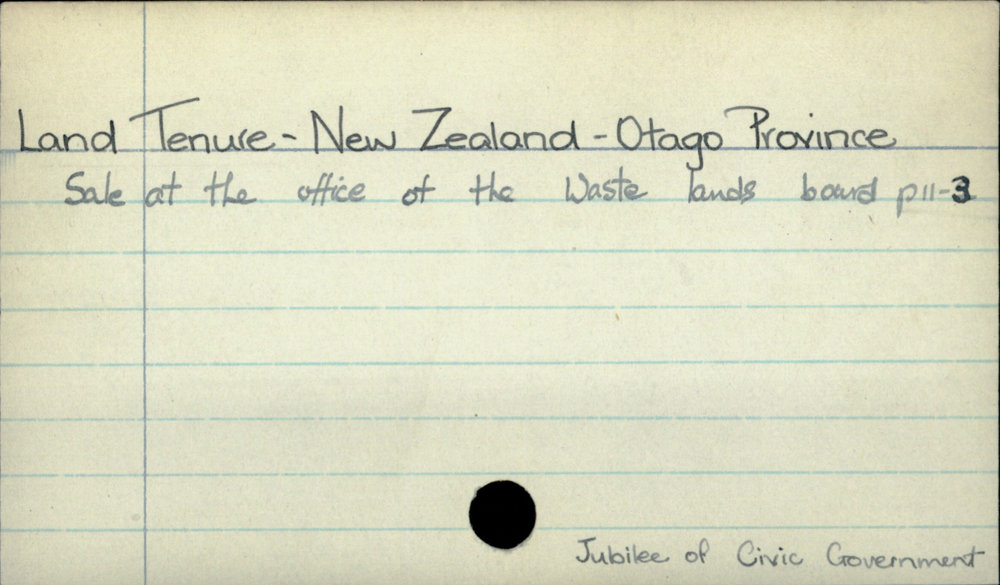 Land Tenure - New Zealand - Otago Province
Sale at the office of the Waste lands board p11-3
Jubilee of Civic Government